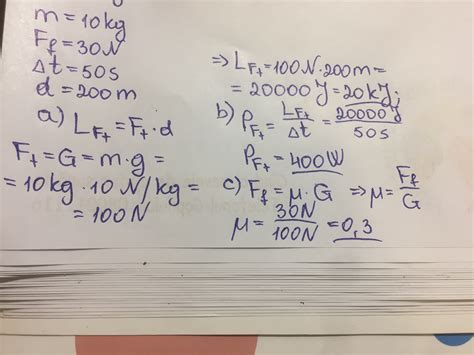 m = 10kg
Ff = 30N
Δt = 50s
d = 200m
a) LFt = Ft · d
Ft = G = m · g =
= 10kg · 10 N/kg =
= 100N
⇒ LFt = 100N · 200m =
= 20000 J = 20 kJ.
b) PFt = LFt/Δt = 20000 J/50s
PFt = 400W
c) Ff = μ · G ⇒ μ = Ff/G
μ = 30N/100N = 0,3